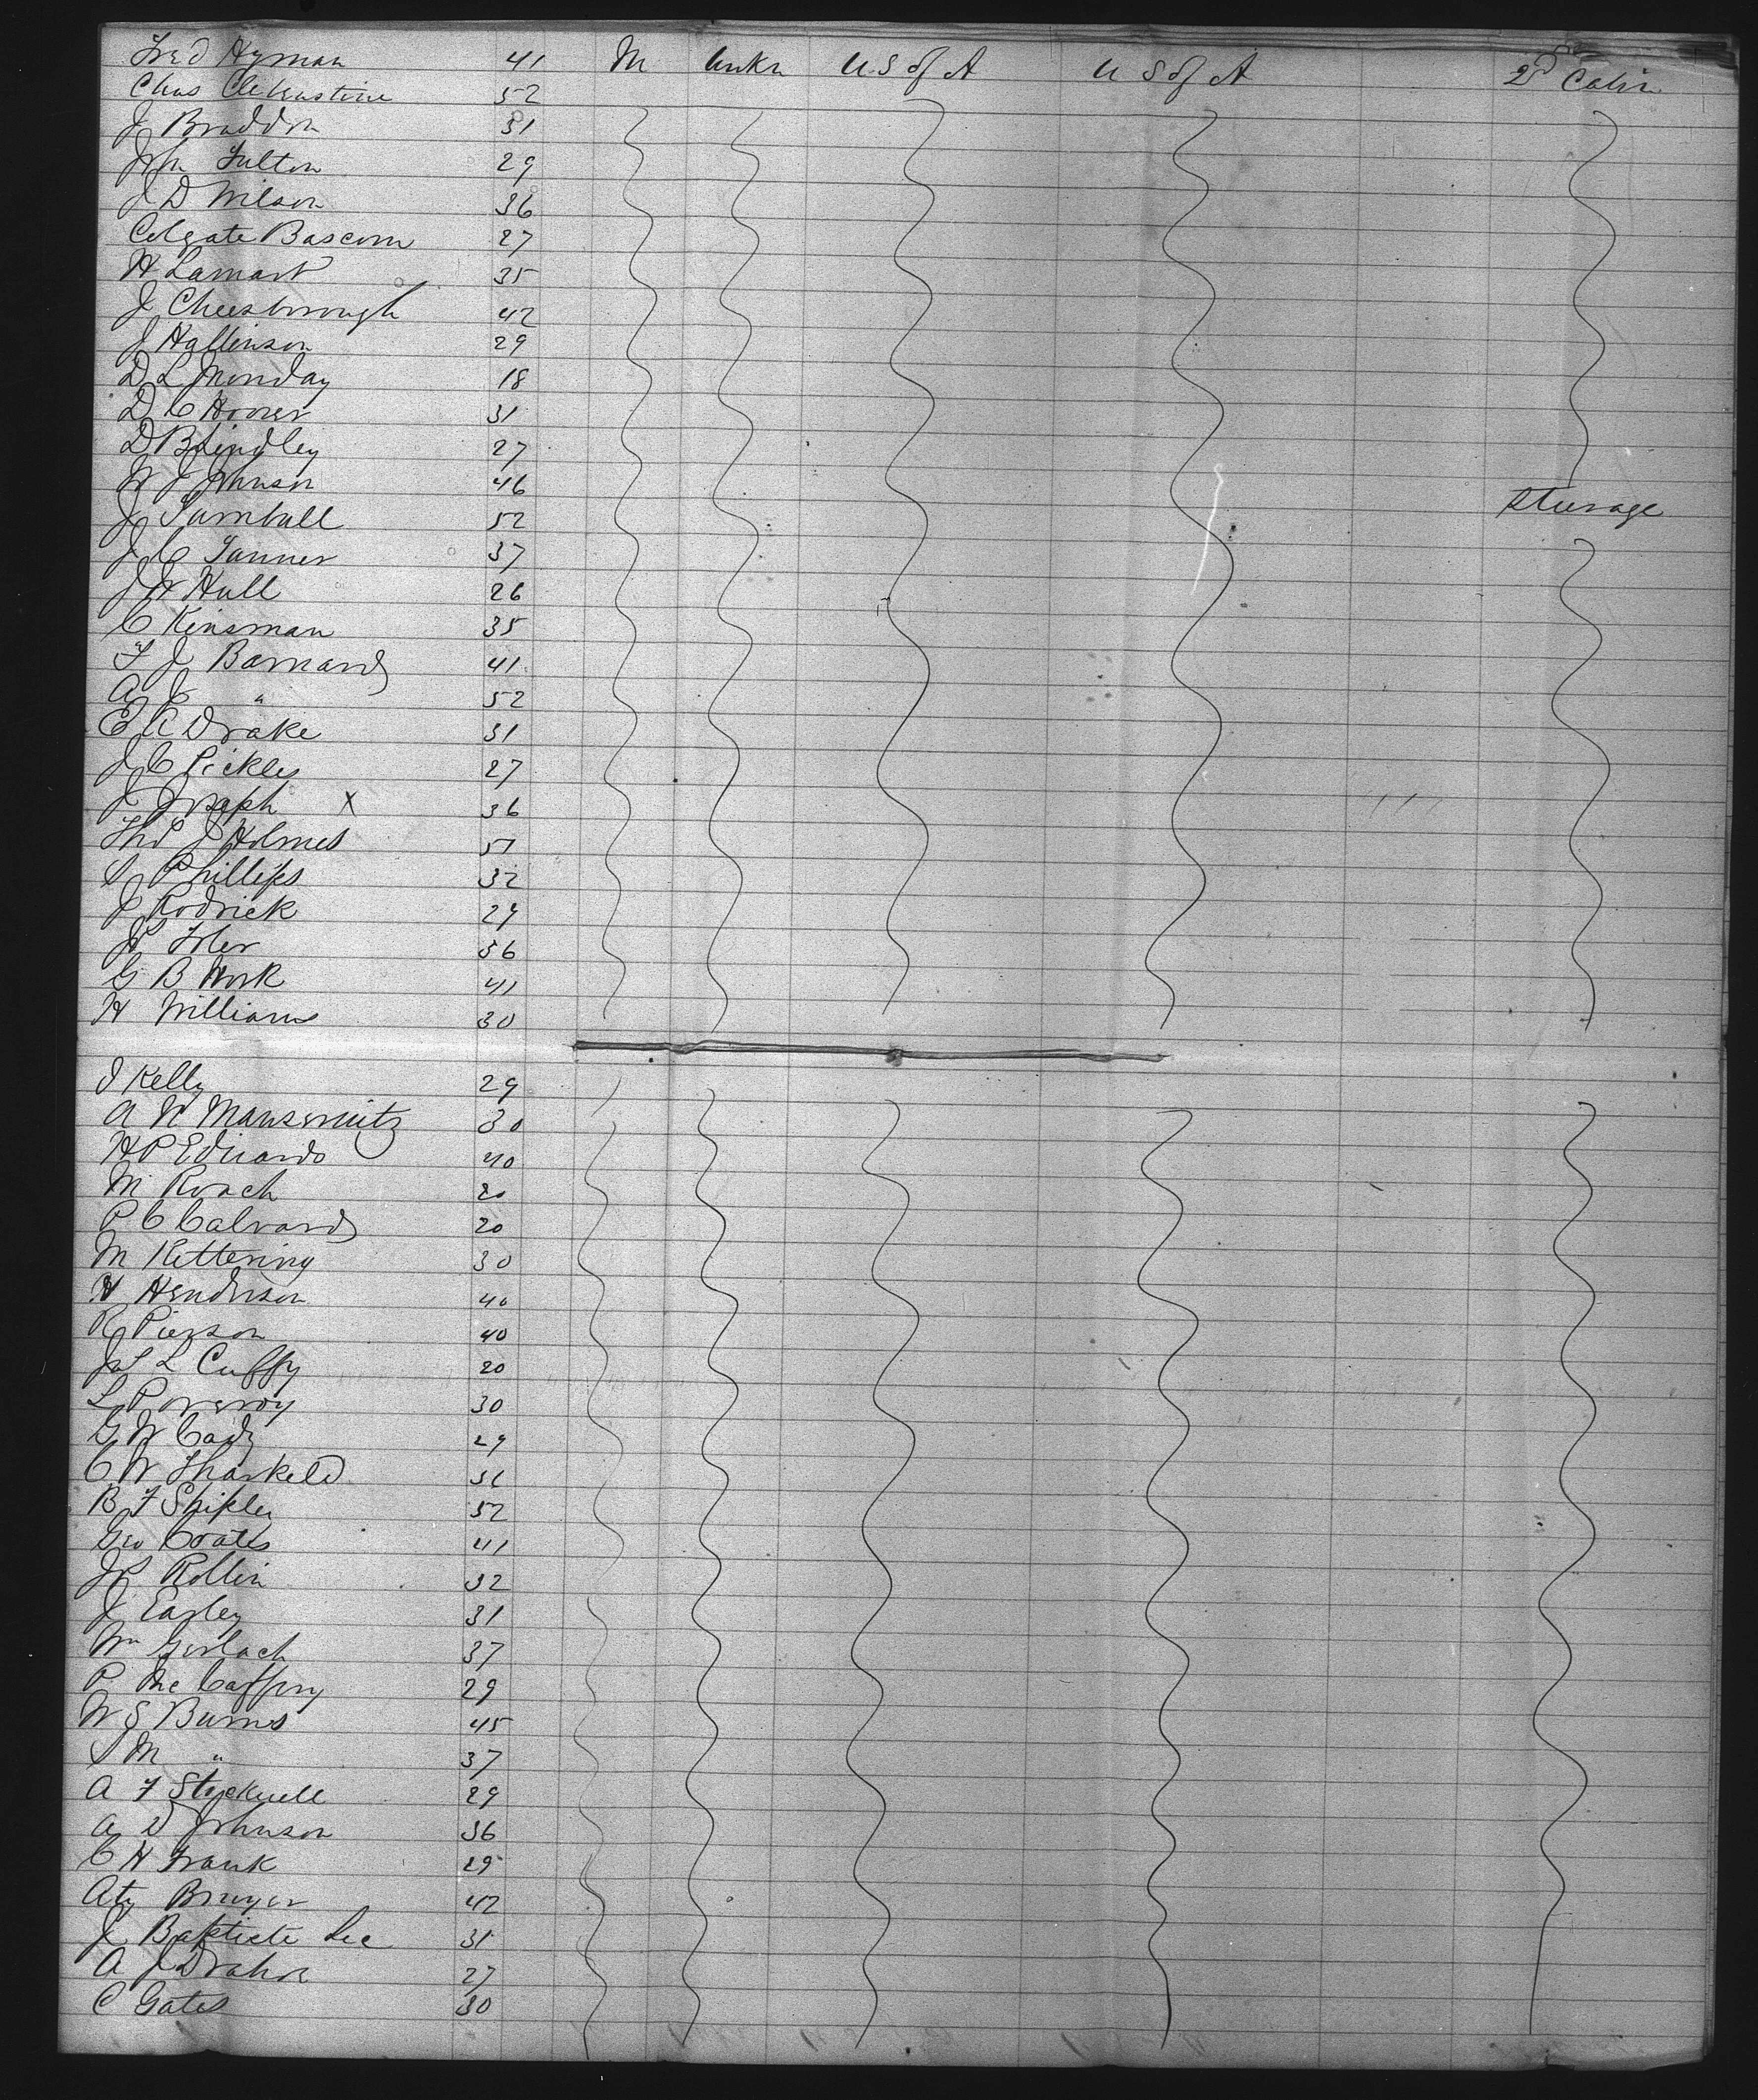 Fred Hyman 41 M Unkn U.S of A U S of A 2d Cabin
Chas Clikenstine 52
J Braddon 31
Jno Fulton 29
J D Wilson 36
Colgate Bascom 27
H Lamart 35
J Cheesborough 42
J Hallinson 29
D L Monday 18
D C Hoover 31
D B Lindley 27
W J Johnson 46
J Turnbull 52 Steerage
J C Tanner 37
J W Hull 26
C Kinsman 35
F J Barnard 41
A J " 52
E R Drake 31
J C Pickles 27
J Joseph X 36
Tho J Holmes 51
S Phillips 32
J Rodrick 29
W Isler 36
G B Work 41
H Williams 30
J Kelly 29
A N 30
H P Eduards 40
M Roach 20
P C Calvard 20
M Kettering 30
H Henderson 40
R Pierson 40
Jas L Cuffy 20
L Pomeroy 30
G W Cady 29
C W Tharkeld 36
B F Shipley 52
Geo Coates 41
Jos Rollin 32
J Earley 31
Wm Gerlach 37
P Mc Caffery 29
W S Burns 45
S M " 37
A F Stockwell 29
A D Johnson 36
C H Frank 29
Bruyer 42
J Baptiste Lee 31
A J 27
C Gates 30